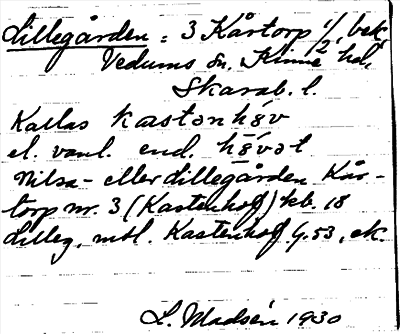 Lillegården = 3 Kårtorp 1/2, bek.
Vedums sn. Kinne hd.
Skarab. l.
Kallas kastanhøv
el. vanl. end. hø̄vət
Nilsa- eller Lillegården Kår-
torp nr. 3 (Kastenhof) kb. 18
Lilleg, mtl. Kastenhof G.53, ek.
L. Madsén 1930